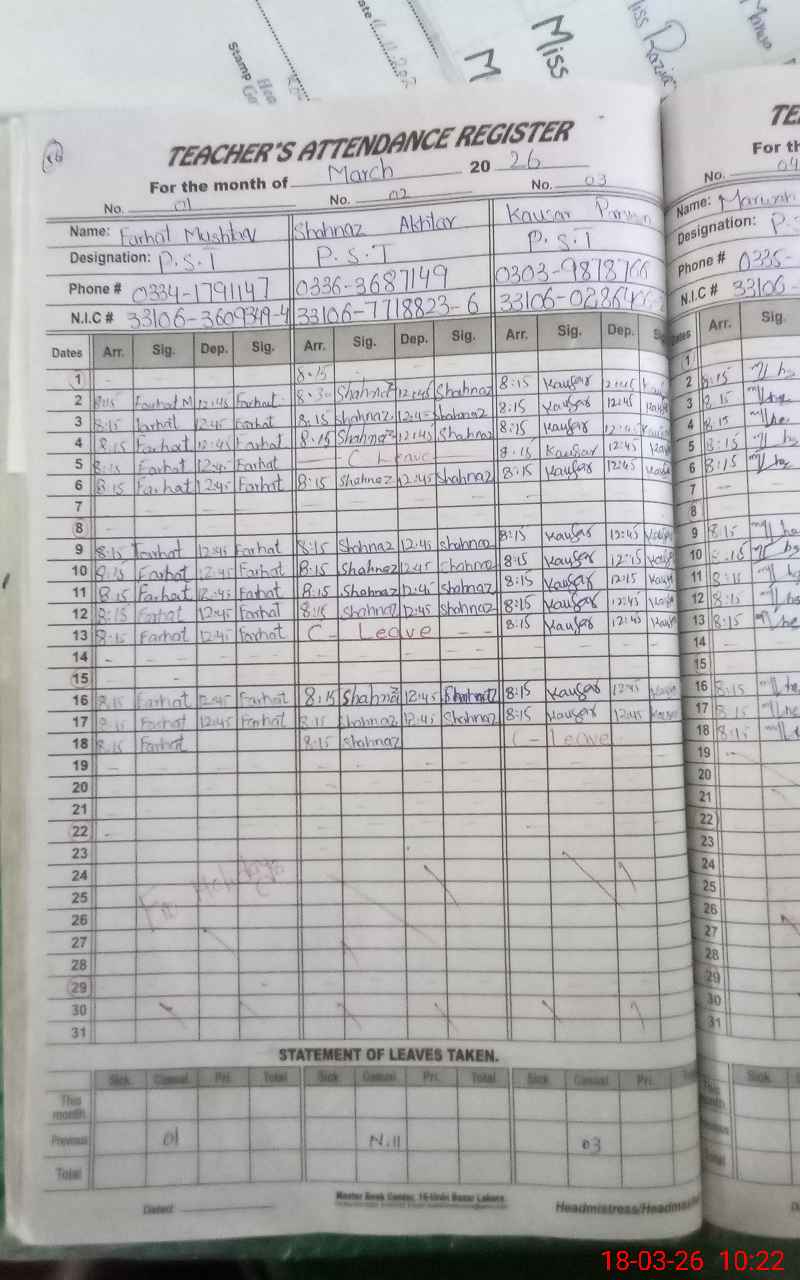 Stamp
Miss
Miss Razia
TEACHER'S ATTENDANCE REGISTER
For the month of March 20 26
No. 01 No. 02 No. 03 No. 04
Name: Farhat Mushtaq Shahnaz Akhtar Kausar Parveen Name:
Designation: P.S.T P.S.T P.S.T Designation:
Phone # 0334-1791147 0336-3687149 0303-9878766 Phone # 0335-
N.I.C # 33106-3609349-4 33106-7718823-6 33106-0286466 N.I.C # 33106-
Dates Arr. Sig. Dep. Sig. Arr. Sig. Dep. Sig. Arr. Sig. Dep. Arr. Sig.
8:15
1 - 1
2 8:15 Farhat M 12:45 Farhat 8:30 Shahnaz 12:45 Shahnaz 8:15 Kausar 12:45 Kausar 2 8:15
3 8:15 Farhat 12:45 Farhat 8:15 Shahnaz 12:45 Shahnaz 8:15 Kausar 12:45 Kausar 3 8:15
4 8:15 Farhat 12:45 Farhat 8:15 Shahnaz 12:45 Shahnaz 8:15 Kausar 12:45 Kausar 4 8:15
5 8:15 Farhat 12:45 Farhat - C Leave 8:15 Kausar 12:45 Kausar 5 8:15
6 8:15 Farhat 12:45 Farhat 8:15 Shahnaz 12:45 Shahnaz 8:15 Kausar 12:45 Kausar 6 8:15
7 7
8 8
9 8:15 Farhat 12:45 Farhat 8:15 Shahnaz 12:45 Shahnaz 8:15 Kausar 12:45 Kausar 9 8:15
10 8:15 Farhat 12:45 Farhat 8:15 Shahnaz 12:45 Shahnaz 8:15 Kausar 12:15 Kausar 10 8:15
11 8:15 Farhat 12:45 Farhat 8:15 Shahnaz 12:45 Shahnaz 8:15 Kausar 12:15 Kausar 11 8:15
12 8:15 Farhat 12:45 Farhat 8:15 Shahnaz 12:45 Shahnaz 8:15 Kausar 12:45 Kausar 12 8:15
13 8:15 Farhat 12:45 Farhat C - Leave - - 8:15 Kausar 12:45 Kausar 13 8:15
14 14
15 15
16 8:15 Farhat 12:45 Farhat 8:15 Shahnaz 12:45 Shahnaz 8:15 Kausar 12:45 Kausar 16 8:15
17 8:15 Farhat 12:45 Farhat 8:15 Shahnaz 12:45 Shahnaz 8:15 Kausar 12:45 Kausar 17 8:15
18 8:15 Farhat 8:15 Shahnaz C - Leave 18 8:15
19 19
20 20
21 21
22 22
23 23
24 24
25 25
26 26
27 27
28 28
29 29
30 30
31 31
STATEMENT OF LEAVES TAKEN.
Sick Casual Pri. Total Sick Casual Pri. Total Sick Casual Pri. Sick
This month
Previous 01 N.ll 03
Total
Dated: Master Book Center, Headmistress/
18-03-26 10:22